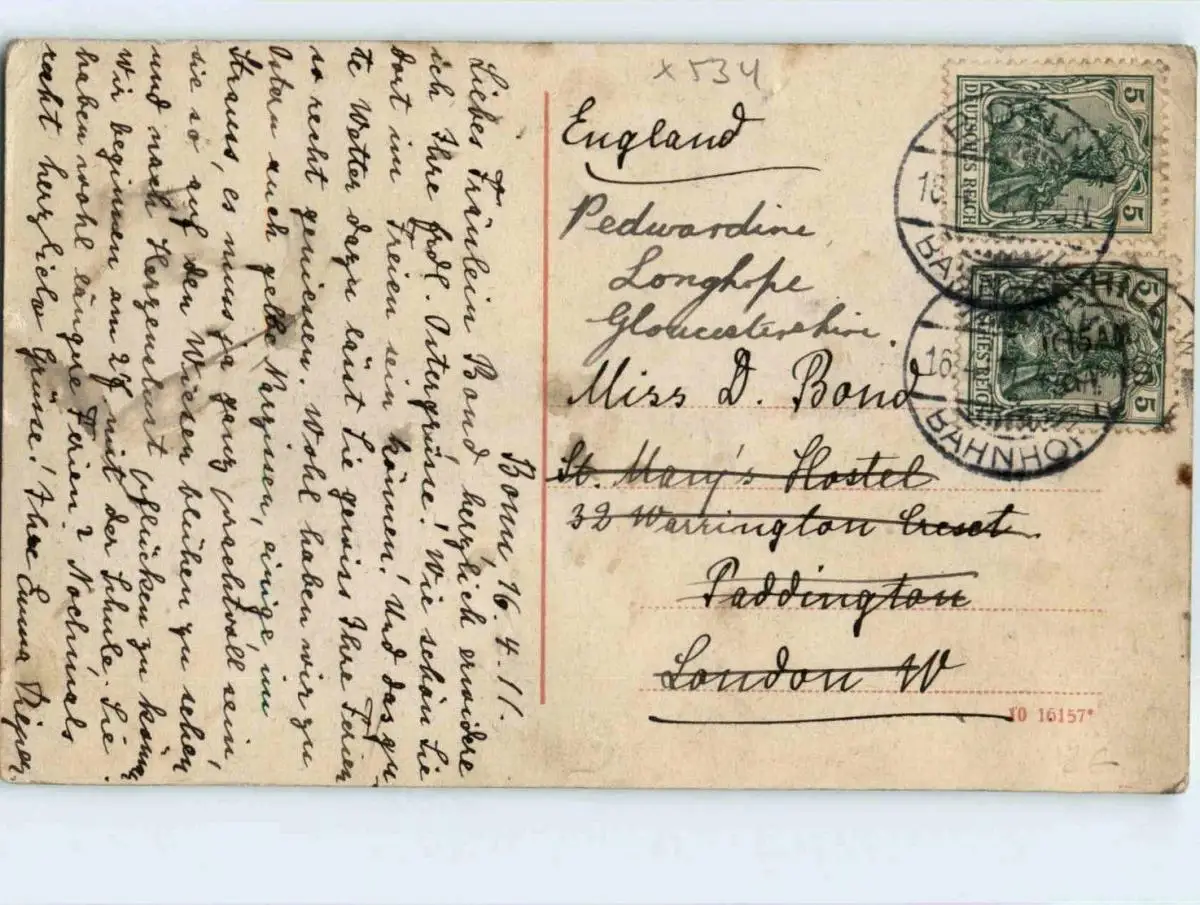 Bonn, 16. 4. 11.
Liebes Fräulein Bond herzlich erwidere
ich Ihre frdl. Ostergrüsse! Wie schön Sie
dort im Freien sein können! Und das gu
te Wetter dazu lässt Sie gewiss Ihre Ferien
so recht geniessen. Wohl haben wir zu
Ostern auch gelbe Narzissen, einige, im
Strauss, es muss ja ganz prachtvoll sein,
sie so auf den Wiesen blühen zu sehen
und nach Herzenslust pflücken zu können
Wir beginnen am 27. mit der Schule. Sie
haben wohl längere Ferien? Nochmals
recht herzliche Grüsse! Ihre Emma
x 534
England
Pedwardine
Longhope
Gloucestershire.
Miss D. Bond
St. Mary's Hostel
32 Warrington Creset.
Paddington
London W
10 16157*
5 5
DEUTSCHES REICH
5 5
DEUTSCHES REICH
16
BAHNHOF
16
BAHNHOF